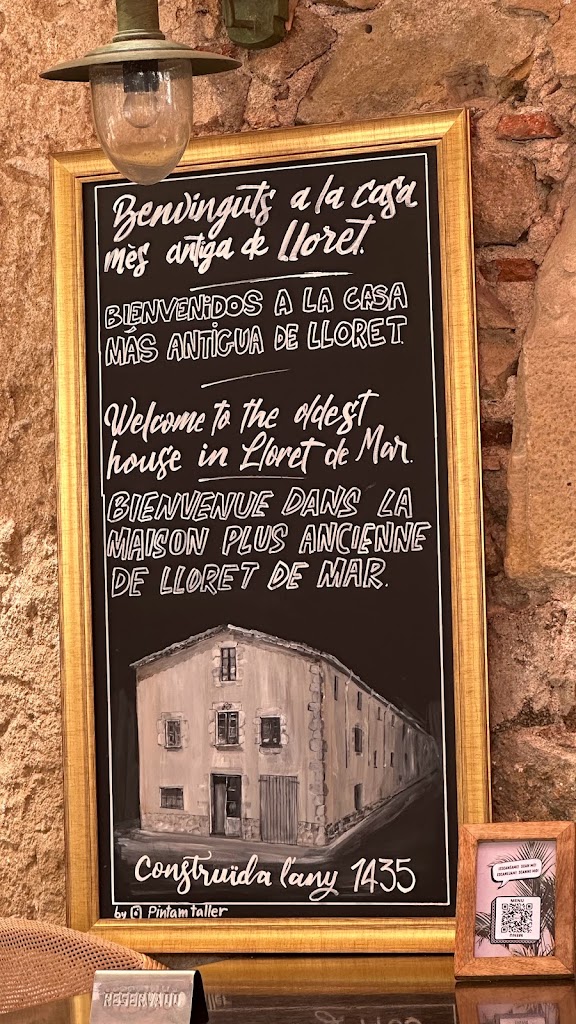 Benvinguts a la casa
mès antiga de Lloret.
BIENVENIDOS A LA CASA
MÁS ANTIGUA DE LLORET.
Welcome to the oldest
house in Lloret de Mar.
BIENVENUE DANS LA
MAISON PLUS ANCIENNE
DE LLORET DE MAR.
Construïda l'any 1435
by Pintam taller
MENU
RESERVADO